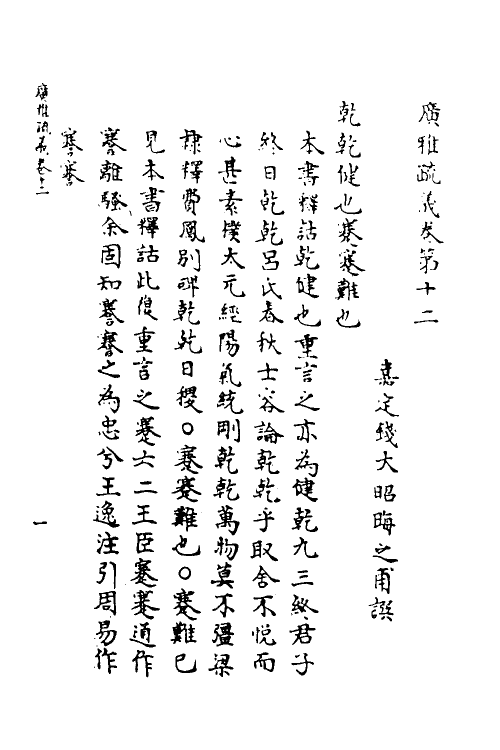 廣雅疏義卷第十二
嘉定錢大昭晦之甫譔
乾乾健也蹇蹇難也
本書釋詁乾健也重言之亦為健乾九三終君子
終日乾乾呂氏春秋士容論乾乾乎取舍不悅而
心甚素樸太元經陽氣統剛乾乾萬物莫不彊梁
隸釋費鳳別碑乾乾日稷○蹇蹇難也○蹇難已
見本書釋詁此復重言之蹇六二王臣蹇蹇通作
謇離騷余固知謇謇之為忠兮王逸注引周易作
謇謇
廣雅疏義卷十二
一